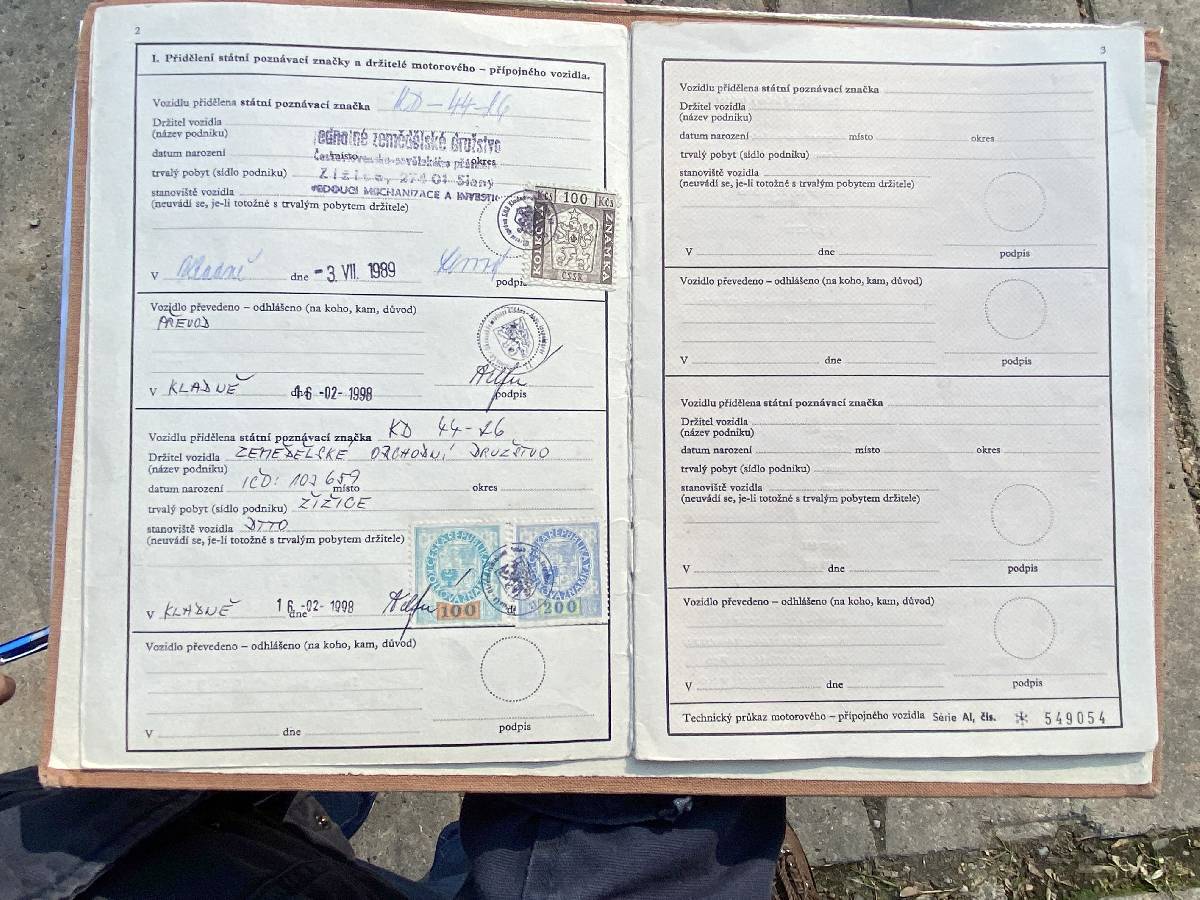 2
I. Přidělení státní poznávací značky a držitelé motorového – přípojného vozidla.
Vozidlu přidělena státní poznávací značka KD-44-26
Držitel vozidla
(název podniku)
Jednotné zemědělské družstvo
datum narození místo okres
trvalý pobyt (sídlo podniku) Žižice, 274 01 Slaný
VEDOUCÍ MECHANIZACE A INVESTIC
stanoviště vozidla
(neuvádí se, je-li totožné s trvalým pobytem držitele)
Kčs 100 Kčs
KOLKOVÁ ZNÁMKA
ČSSR
V Kladně dne -3. VII. 1989
podpis
Vozidlo převedeno – odhlášeno (na koho, kam, důvod)
PŘEVOD
V KLADNĚ dne 16 -02- 1998
podpis
Vozidlu přidělena státní poznávací značka KD 44-26
Držitel vozidla ZEMĚDĚLSKÉ OBCHODNÍ DRUŽSTVO
(název podniku)
datum narození IČO: 107 659 místo okres
trvalý pobyt (sídlo podniku) ŽIŽICE
stanoviště vozidla DTTO
(neuvádí se, je-li totožné s trvalým pobytem držitele)
ČESKÁ REPUBLIKA
KOLKOVÁ ZNÁMKA
100
ČESKÁ REPUBLIKA
KOLKOVÁ ZNÁMKA
200
V KLADNĚ dne 16 -02- 1998
Vozidlo převedeno – odhlášeno (na koho, kam, důvod)
V dne
podpis
3
Vozidlu přidělena státní poznávací značka
Držitel vozidla
(název podniku)
datum narození místo okres
trvalý pobyt (sídlo podniku)
stanoviště vozidla
(neuvádí se, je-li totožné s trvalým pobytem držitele)
V dne podpis
Vozidlo převedeno – odhlášeno (na koho, kam, důvod)
V dne podpis
Vozidlu přidělena státní poznávací značka
Držitel vozidla
(název podniku)
datum narození místo okres
trvalý pobyt (sídlo podniku)
stanoviště vozidla
(neuvádí se, je-li totožné s trvalým pobytem držitele)
V dne podpis
Vozidlo převedeno – odhlášeno (na koho, kam, důvod)
V dne podpis
Technický průkaz motorového – přípojného vozidla Série AI, čís. * 549054